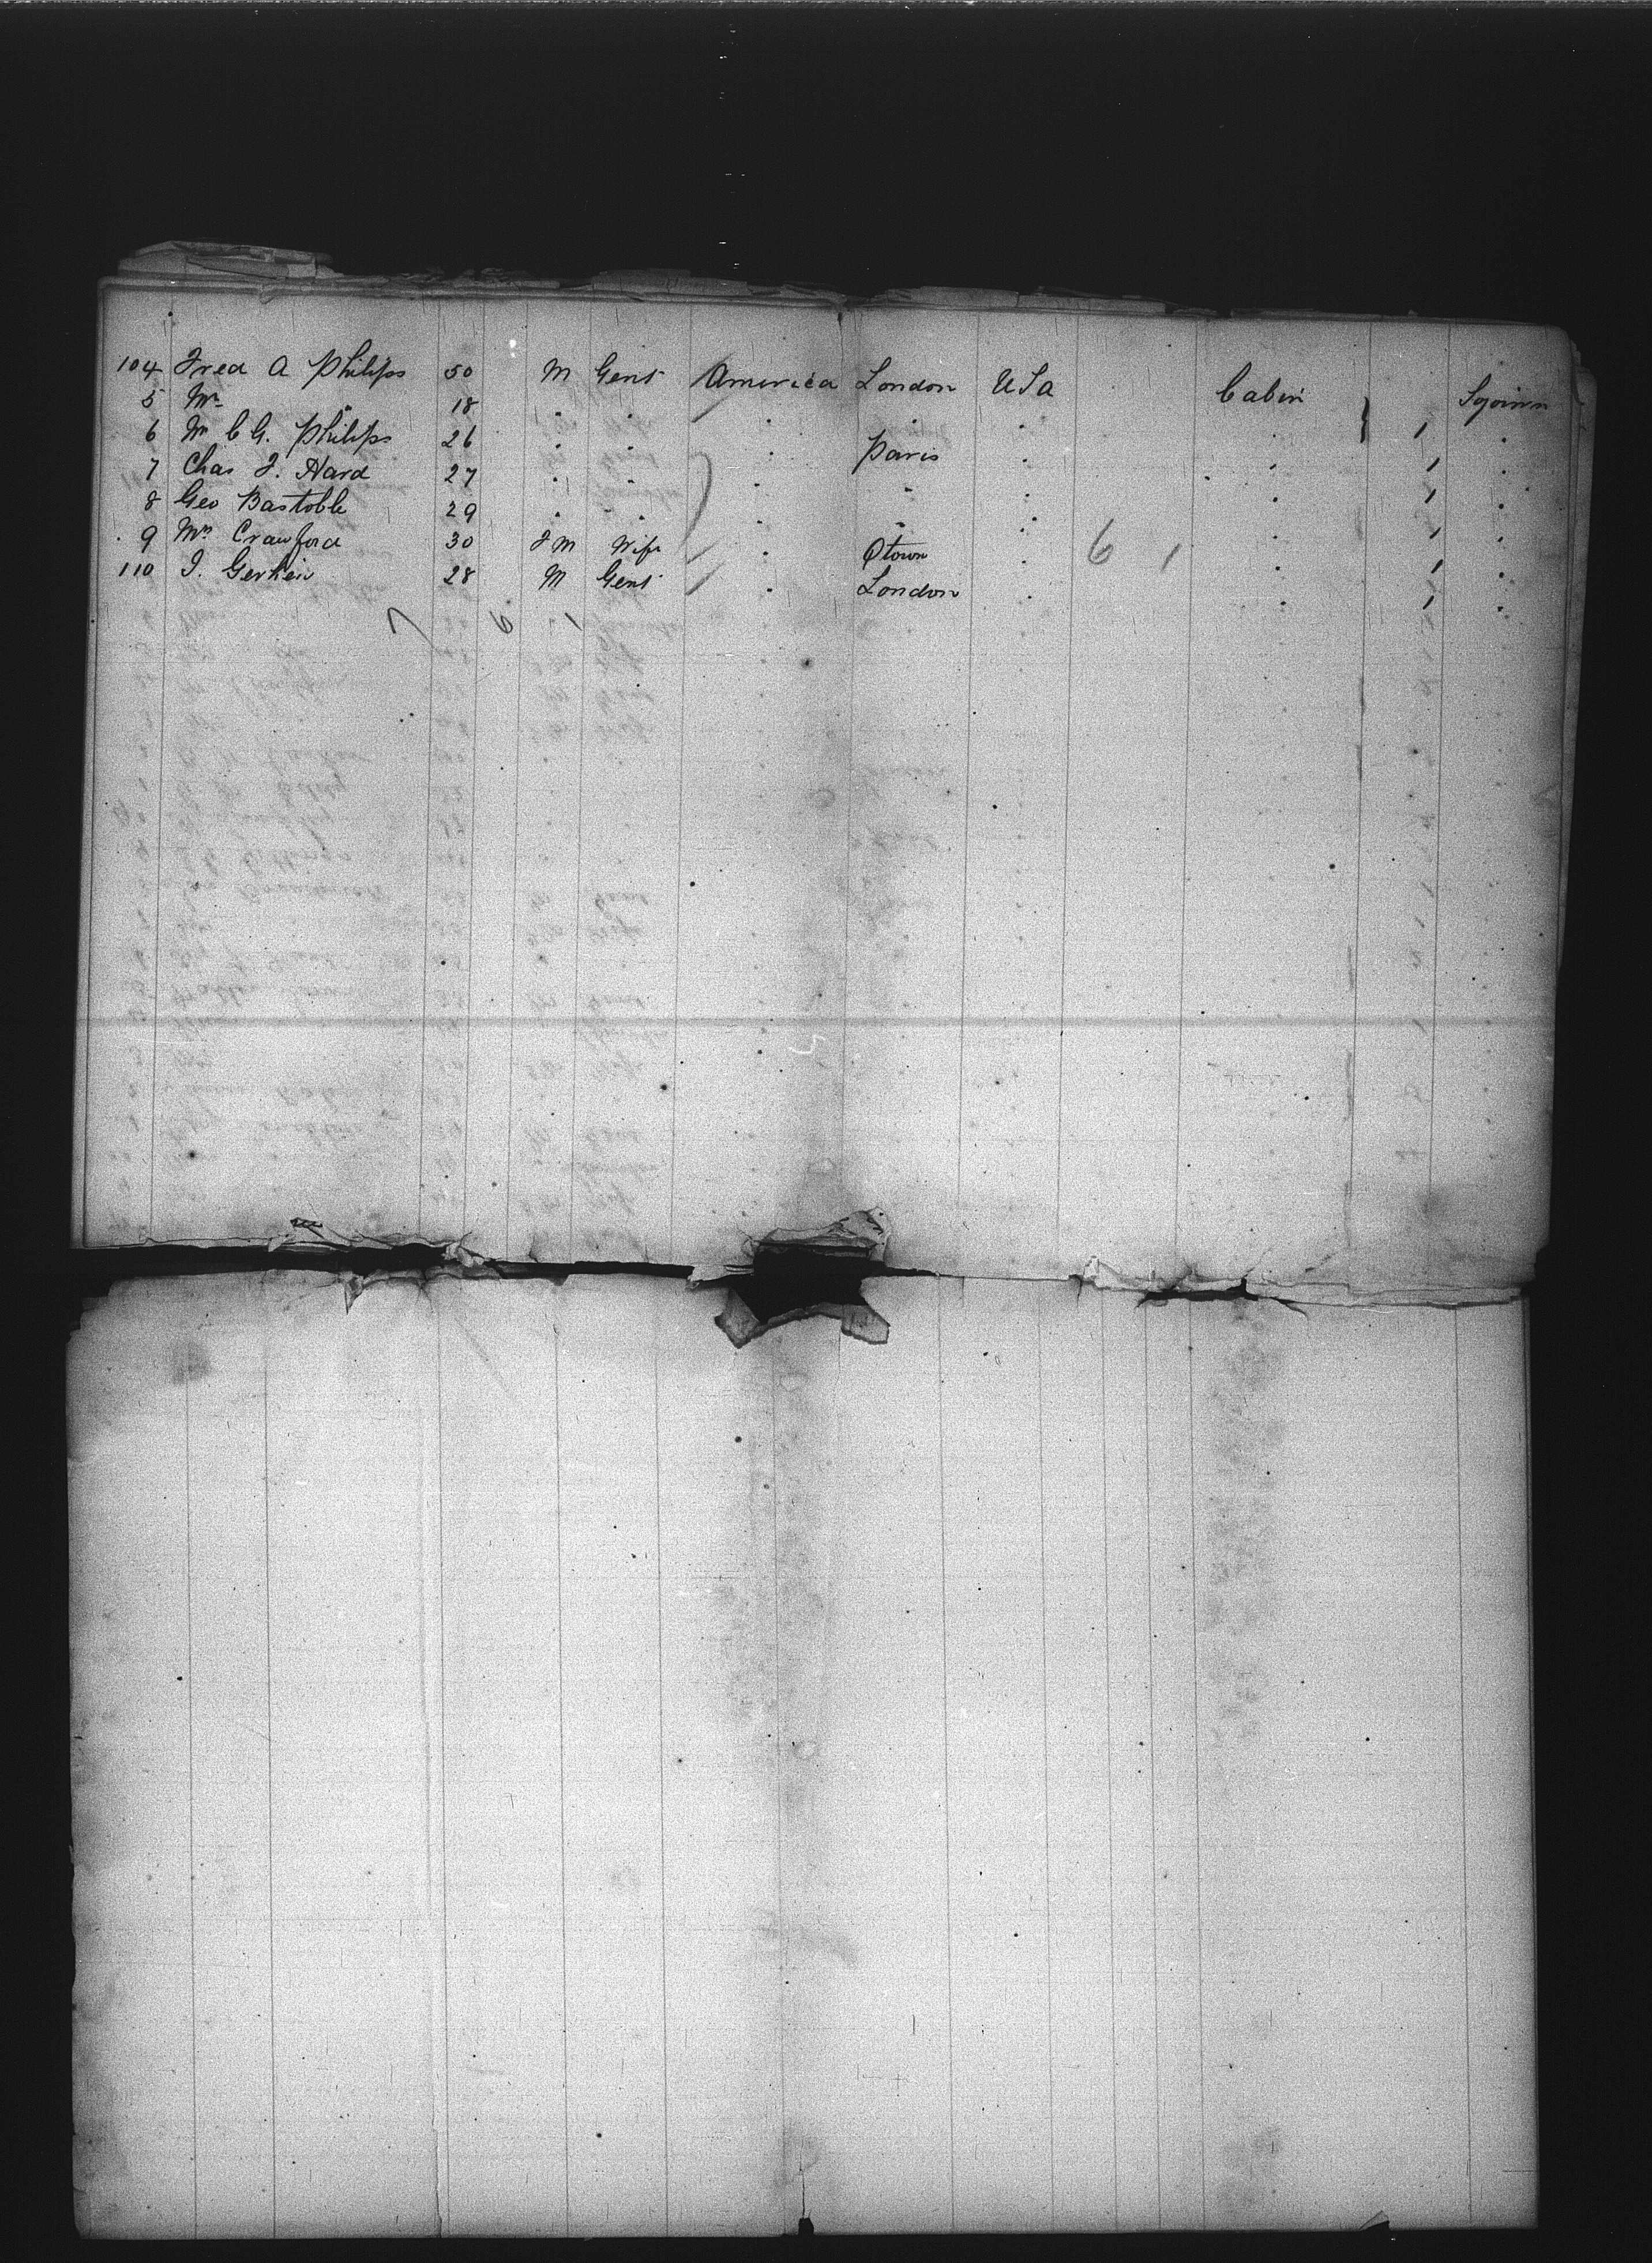 104 Fred A Philips 50 M Gent America London USa Cabin Sojourn
5 Mr " 18 " " " " " " 1 "
6 Mr C G. Philips 26 " " " Paris " " 1 "
7 Chas F. Hard 27 " " " " " " 1 "
8 Geo Bastoble 29 " " " " " " 1 "
9 Mrs Crawford 30 F M Wife " Qtown " 6 1 " 1 "
110 J. Gerhein 28 M Gent " London " " 1 "
7 6 1